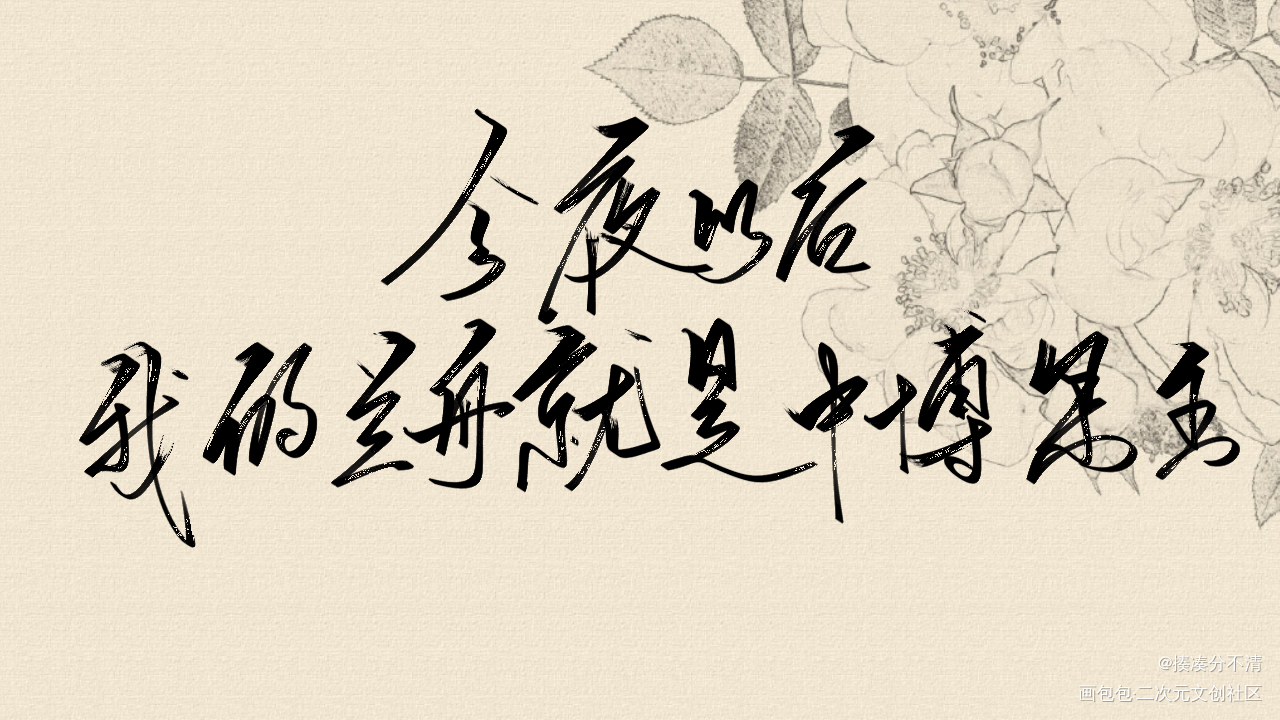 今夜以后
我的兰舟就是中博果主
@揍凑分不清
画包包·二次元文创社区